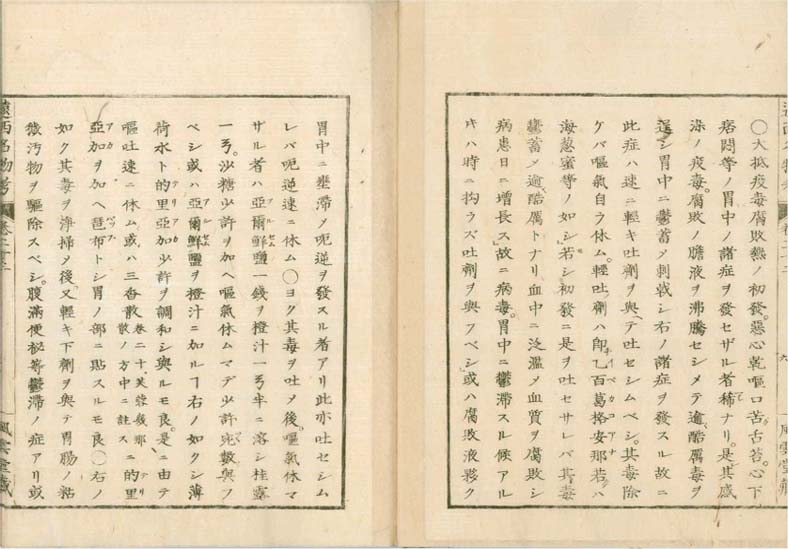 〇大抵疫毒腐敗熱ノ初發。惡心乾嘔口苦舌苔。心下
痞悶等ノ胃中ノ諸症ヲ發セザル者稀ナリ。是其感
染ノ疫毒。腐敗ノ膽液ヲ沸騰セシメテ逾酷厲毒ヲ
逞シ胃中ニ鬱蓄メ刺戟シ右ノ諸症ヲ發スル故ニ
此症ハ速ニ輕キ吐劑ヲ與ヘテ吐セシムベシ。其毒除
ケバ嘔氣自ラ休ム。輕吐劑ハ即乙百葛格安那若ハ
海葱蜜等ノ如シ。若シ初發ニ是ヲ吐セサレバ其毒
鬱蓄メ逾酷厲トナリ。血中ニ泛濫メ血質ヲ腐敗シ
病患日ニ增長ス。故ニ病毒。胃中ニ鬱滯スル候アル
キハ時ニ拘ラズ吐劑ヲ與フベシ。或ハ腐敗液夥ク
遠西名物考 卷二十三
風雲堂藏
胃中ニ壅滯メ呃逆ヲ發スル者アリ此亦吐セシム
レバ呃逆速ニ休ム〇ヨク其毒ヲ吐メ後。嘔氣休マ
ザル者ハ亞爾鮮鹽一錢ヲ橙汁一弓半ニ溶シ桂露
一弓。沙糖少許ヲ加ヘ嘔氣休ムマデ少許宛數與フ
ベシ或ハ亞爾鮮鹽ヲ橙汁ニ加ルヿ右ノ如クシ薄
荷水ト的里亞加少許ヲ調和シ與ルモ良。是ニ由テ
嘔吐速ニ休ム或ハ三香散卷二十。芙蓉幾那散ノ方中ニ註スニ的里
亞加ヲ加ヘ琶布トシ胃ノ部ニ貼スルモ良〇右ノ
如ク其毒ヲ淨掃メ後。又輕キ下劑ヲ與テ胃腸ノ粘
徽汚物ヲ驅除スベシ。腹滿便祕等鬱滯ノ症アリ或
遠西名物考 卷二十三
風雲堂藏